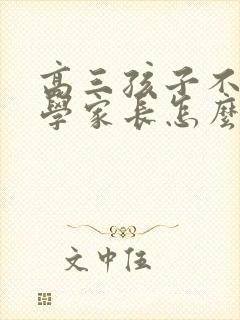 高三孩子不
學家長怎麼
文中伍